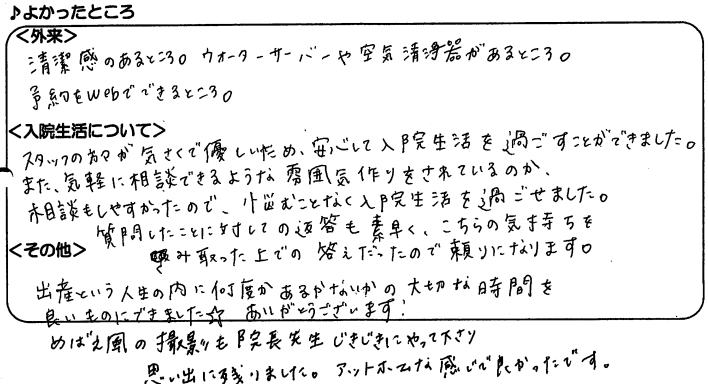 ♪よかったところ
<外来>
清潔感のあるところ。ウオーターサーバーや空気清浄器があるところ。
予約をWebでできるところ。
<入院生活について>
スタッフの方々が気さくで優しいため、安心して入院生活を過ごすことができました。
また、気軽に相談できるような雰囲気作りをされているのか、
相談もしやすかったので、悩むことなく入院生活を過ごせました。
質問したことに対しての返答も素早く、こちらの気持ちを
<その他>
汲み取った上での答えだったので頼りになります。
出産という人生の内に何度かあるかないかの大切な時間を
良いものにできました☆ ありがとうございます!
めばえ風の撮影も院長先生じきじきにやって下さり
思い出に残りました。アットホームな感じで良かったです。